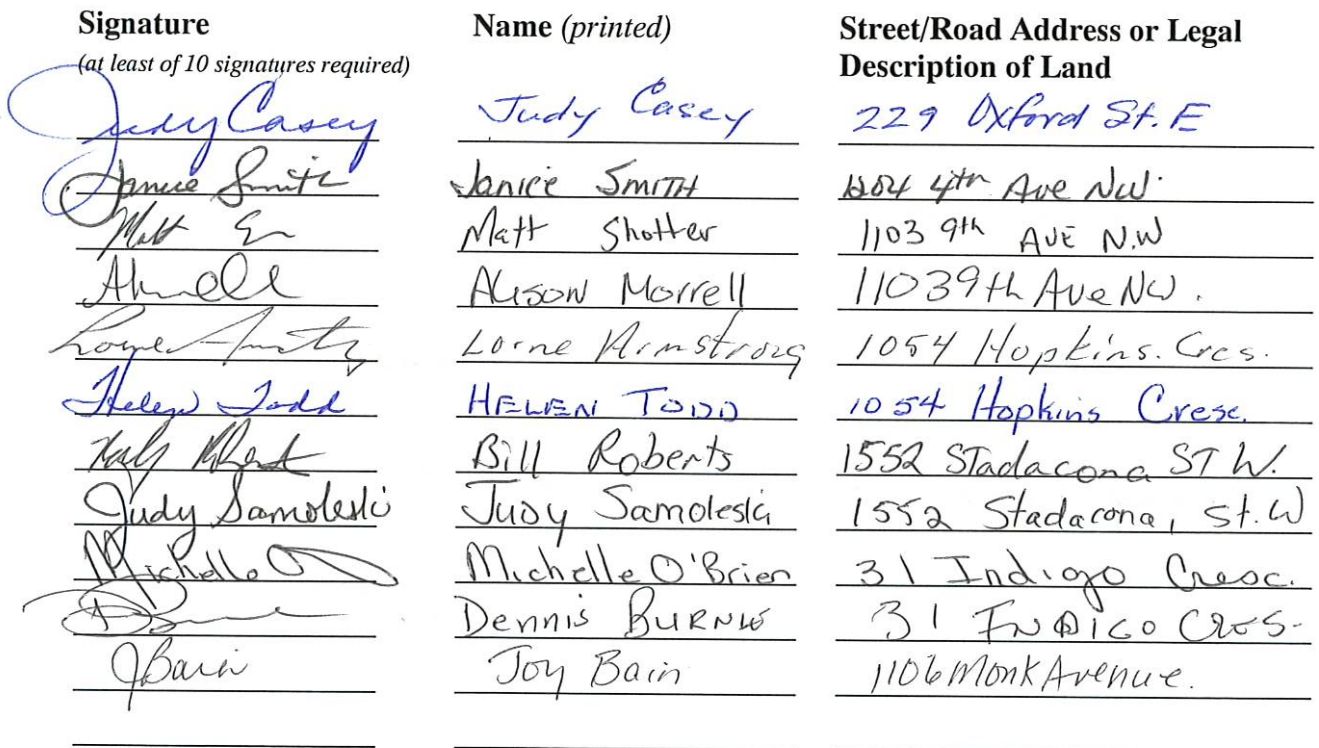 Signature Name (printed) Street/Road Address or Legal
(at least of 10 signatures required) Description of Land
Judy Casey Judy Casey 229 Oxford St. E
Janice Smith Janice SMITH 1204 4th Ave NW.
Matt Matt Shotter 1103 9th AVE N.W
Alison Morrell 1103 9th Ave NW.
Lorne Armstrong Lorne Armstrong 1054 Hopkins. Cres.
Helen Todd HELEN TODD 1054 Hopkins Cresc.
Bill Roberts 1552 STadacona ST W.
Judy Samoleski JUDY Samoleski 1552 Stadacona, St. W
Michelle O Michelle O'Brien 31 Indigo Cresc.
Dennis 31 INDIGO CRES.
JBain Joy Bain 1106 Monk Avenue.